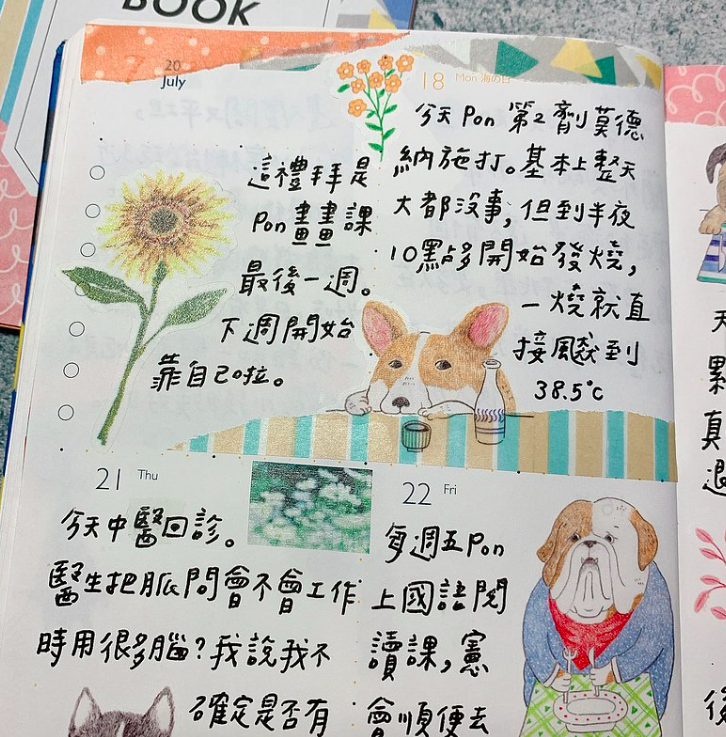 BOOK
20
July
這禮拜是
Pon畫畫課
最後一週。
下週開始
靠自己啦。
18 Mon 海の日
今天Pon 第2劑莫德
納施打。基本上整天
大都沒事,但到半夜
10點多開始發燒,
一燒就直
接飆到
38.5°c
21 Thu
今天中醫回診。
醫生把脈問會不會工作
時用很多腦?我說我不
確定是否有
22 Fri
每週五Pon
上國語閱
讀課,憲
會順便去
天
累
真
退
後